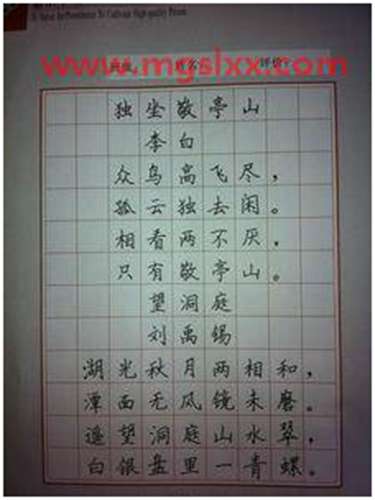 & Value the Persistence To Cultivate High-quality Person
www.mgslxx.com
班级: 姓名: 评价:
独坐敬亭山
李白
众鸟高飞尽，
孤云独去闲。
相看两不厌，
只有敬亭山。
望洞庭
刘禹锡
湖光秋月两相和，
潭面无风镜未磨。
遥望洞庭山水翠，
白银盘里一青螺。